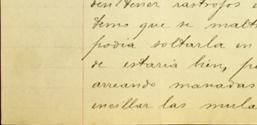 destener rastrojos o
tems que se malt
podia soltarla en
de estaria bien, p
arreando manadas
encillar las mula